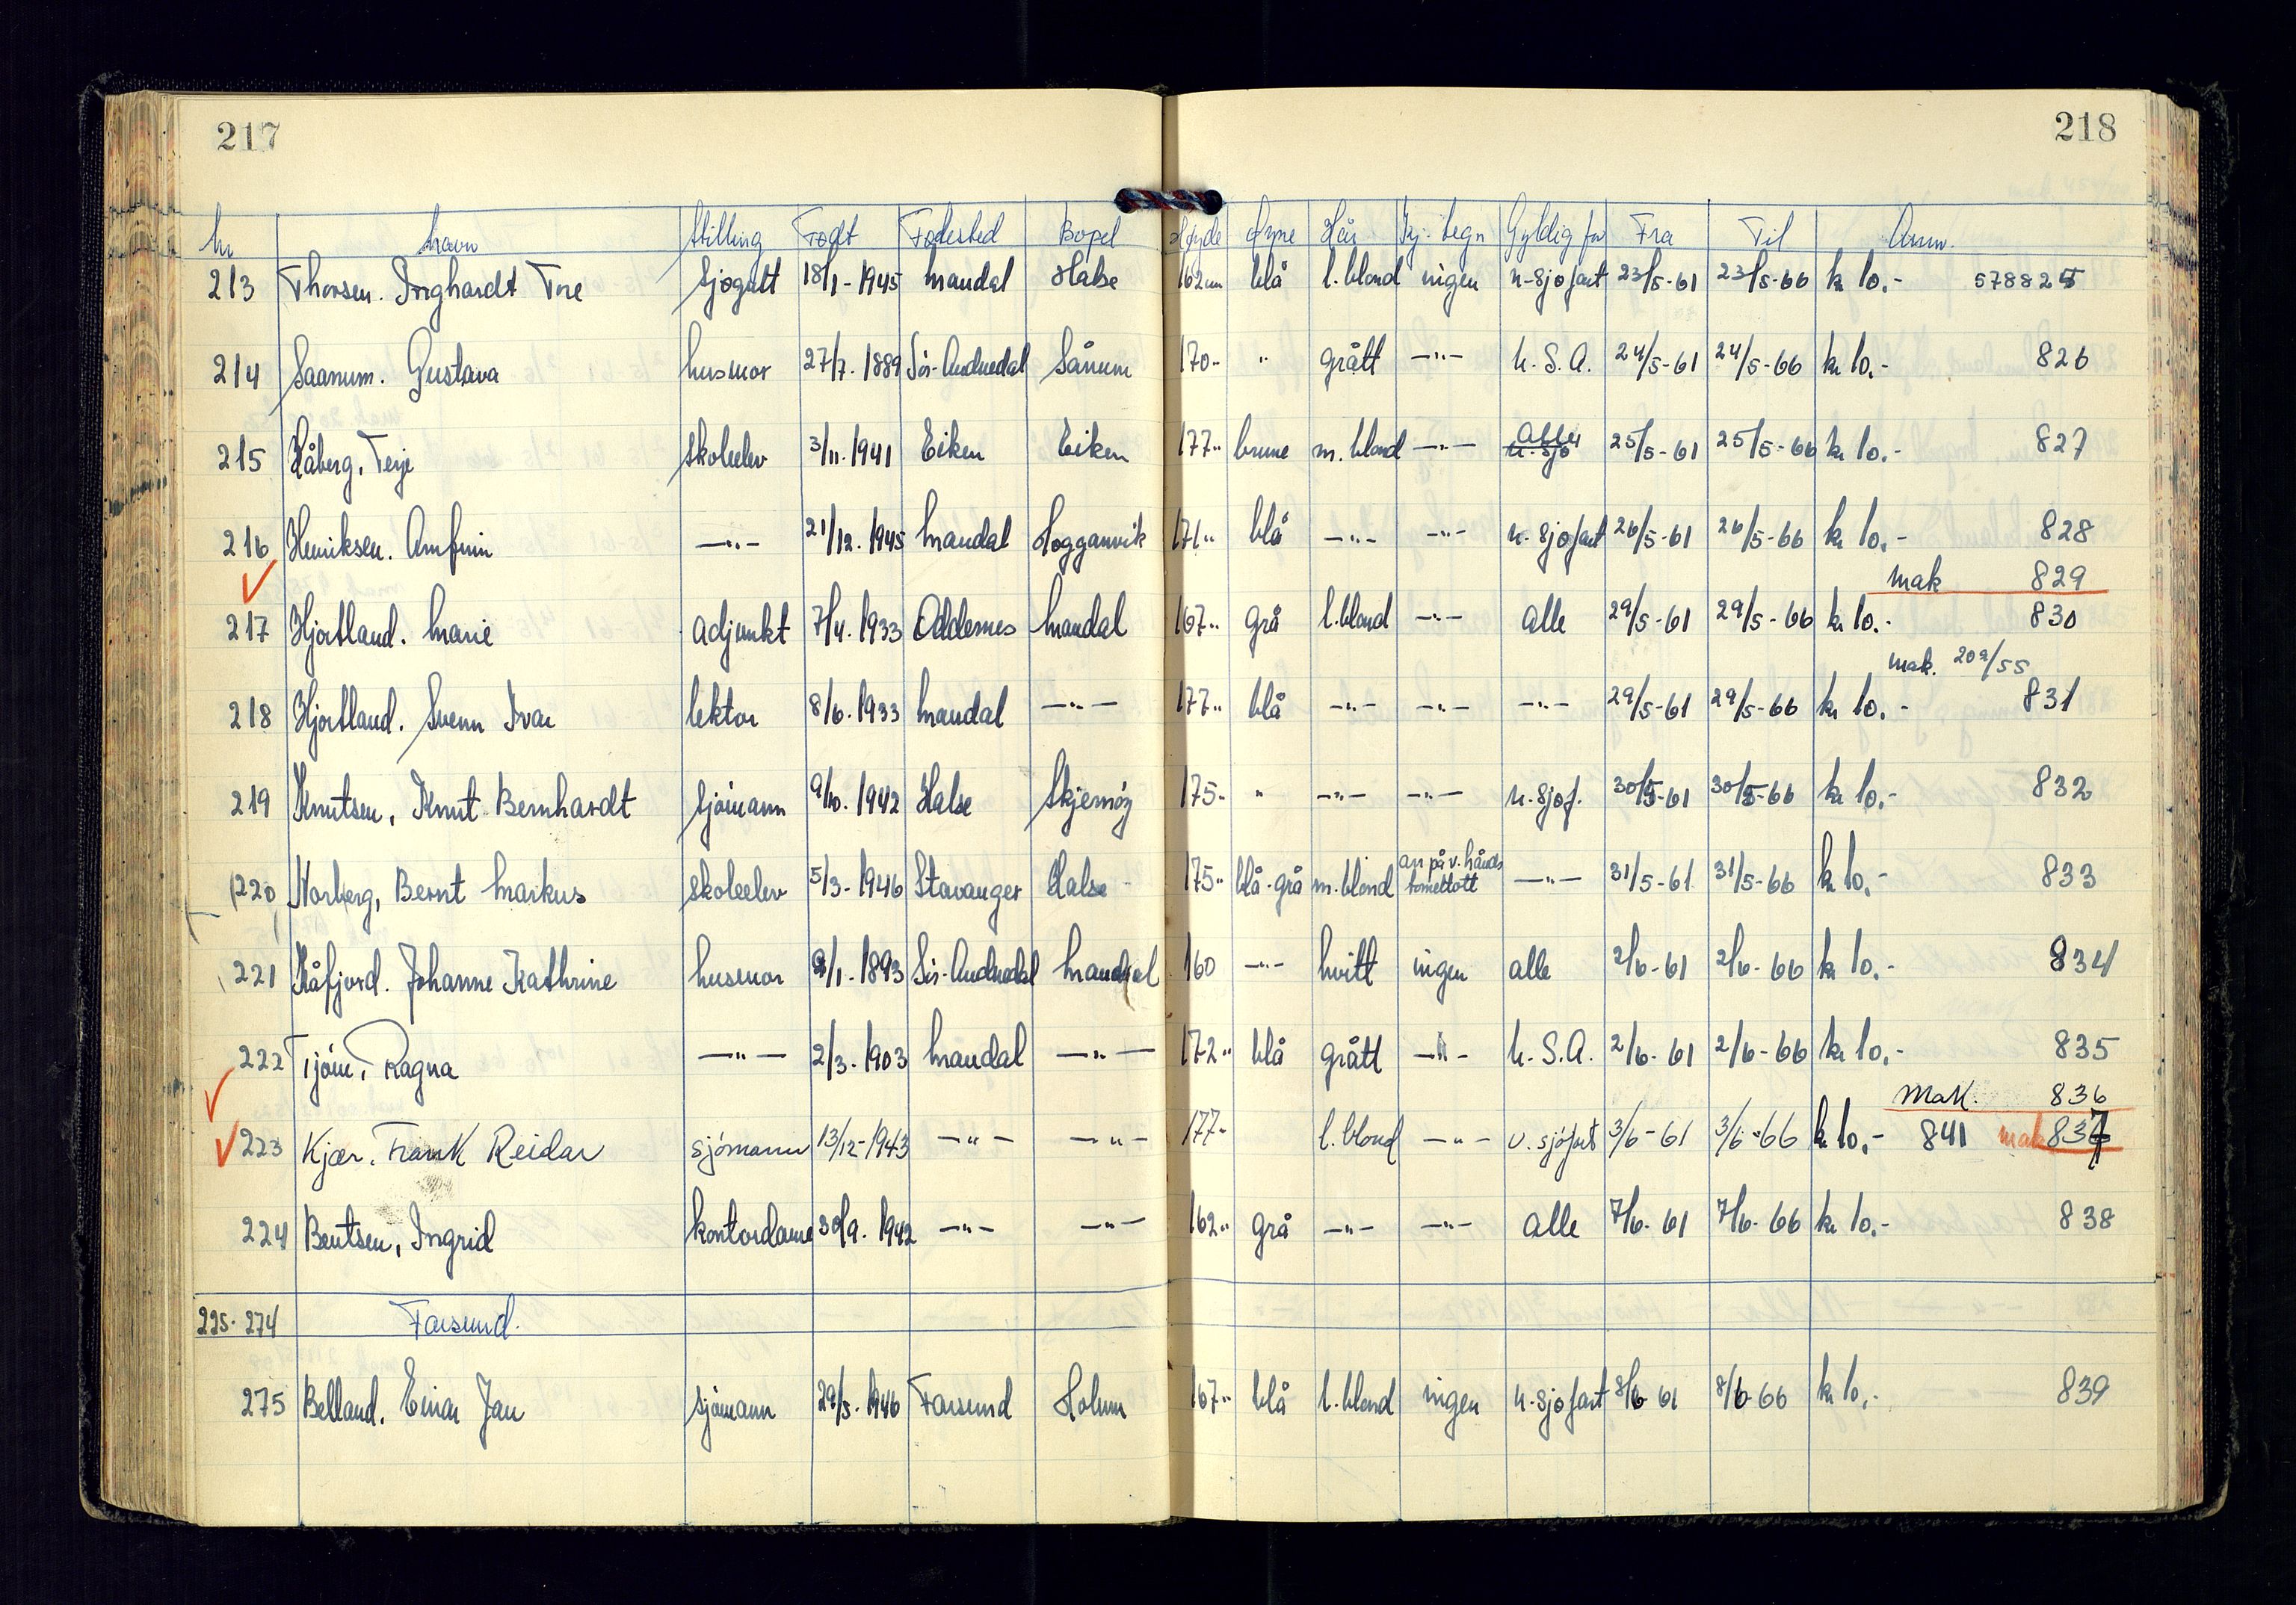 217
218
Nr Navn Stilling Født Fødested Bopel Høyde Øyne Hår Kj. tegn Gyldig for Fra Til Anm.
213 Thorsen. Inghardt Tore sjøgutt 18/1-1945 Mandal Halse 162 cm blå l. blond ingen u-sjøfart 23/5-61 23/5-66 kr 10.- 578825
214 Saanum. Gustava husmor 27/7. 1889 Sör-Audnedal Sånum 170-" " grått -"- U.S.A. 24/5-61 24/5-66 kr 10.- 826
215 Håberg, Terje skoleelev 3/11. 1941 Eiken Eiken 177-" brune m. blond -"- alle u.-sjø 25/5-61 25/5-66 kr 10.- 827
216 Henriksen. Arnfinn -"- 21/12. 1945 Mandal Hogganvik 171" blå -"- -"- u-sjøfart 26/5-61 26/5-66 kr 10.- 828
mak 829
217 Hjortland. Marie adjunkt 7/4. 1933 Oddernes Mandal 167" grå l. blond -"- alle 29/5-61 29/5-66 kr 10.- 830
mak. 209/55
218 Hjortland. Svenn Ivar lektor 8/6. 1933 Mandal -"- 177" blå -"- -"- -"- 29/5-61 29/5-66 kr 10.- 831
219 Knutsen, Knut Bernhardt sjömann 9/10. 1942 Halse Skjernöy 175" " -"- -"- u-sjøf. 30/5-61 30/5-66 kr 10.- 832
220 Norberg, Bernt Markus skoleelev 5/3-1946 Stavanger Halse 175" blå-grå m. blond arr på v. hånds tomeltott -"- 31/5-61 31/5-66 kr 10.- 833
221 Kåfjord. Johanne Kathrine husmor /1-1893 Sör-Audnedal Mandal 160 -"- hvitt ingen alle 2/6-61 2/6-66 kr 10.- 834
222 Tjöm, Ragna -"- 2/3. 1903 Mandal -"- 172" blå grått -"- U.S.A. 2/6-61 2/6-66 kr 10.- 835
mak. 836
223 Kjær. Frank Reidar sjömann 13/12-1943 -"- -"- 177" l. blond -"- u. sjöfart 3/6-61 3/6-66 kr 10.- 841 mak 837
224 Bentsen, Ingrid kontordame 30/9. 1942 -"- -"- 162" grå -"- -"- alle 7/6-61 7/6-66 kr 10.- 838
225-274 Farsund.
275 Belland. Einar Jan sjömann 29/5. 1946 Farsund Holum 167" blå l. blond ingen u-sjøfart 8/6-61 8/6-66 kr 10.- 839